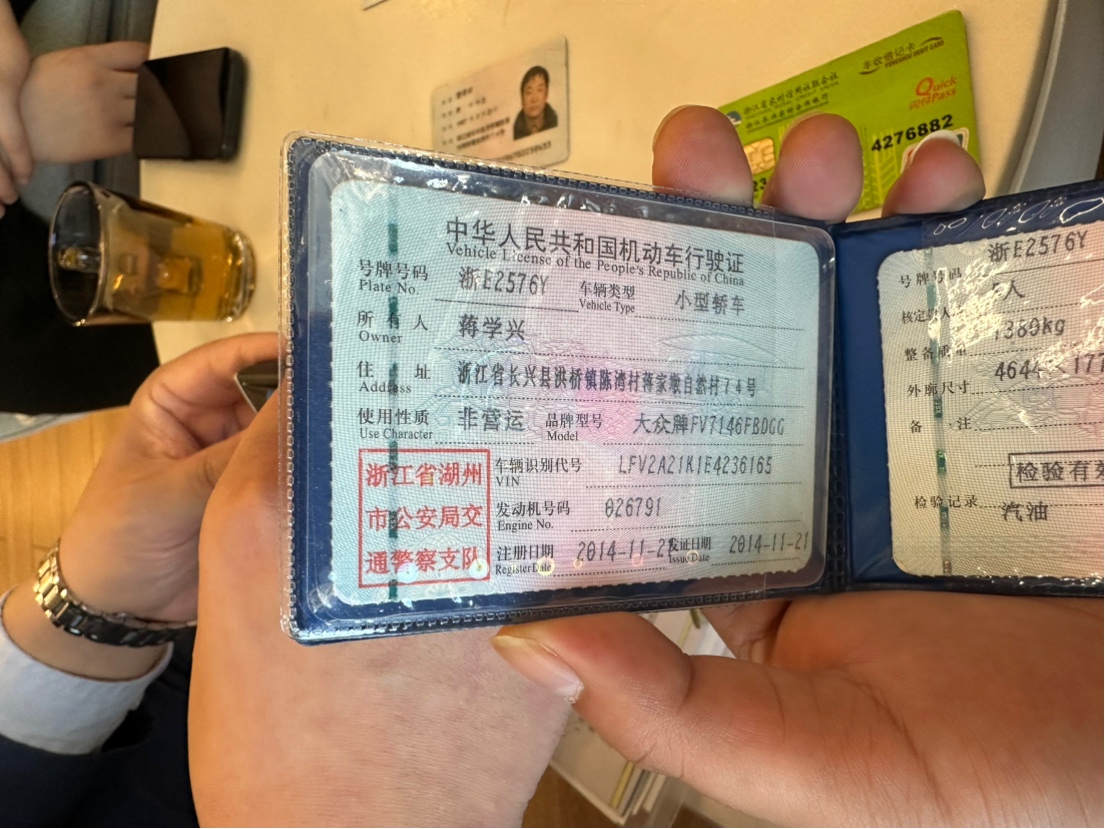 中华人民共和国机动车行驶证
Vehicle License of the People's Republic of China
号牌号码 浙E2576Y 车辆类型 小型轿车
Plate No. Vehicle Type
所有人 蒋学兴
Owner
住址 浙江省长兴县洪桥镇陈湾村蒋家墩自然村74号
Address
使用性质 非营运 品牌型号 大众牌FV7146FBDGG
Use Character Model
浙江省湖州
市公安局交
通警察支队
车辆识别代号 LFV2A21K1E4236165
VIN
发动机号码 026791
Engine No.
注册日期 2014-11-21 发证日期 2014-11-21
Register Date Issue Date
号牌号码 浙E2576Y
核定载人 5人
整备质量 1380kg
外廓尺寸 4644 177
备注
检验有效
检验记录 汽油
浙江省农村信用社联合社
丰收借记卡
Quick
Pass
闪付
4276882